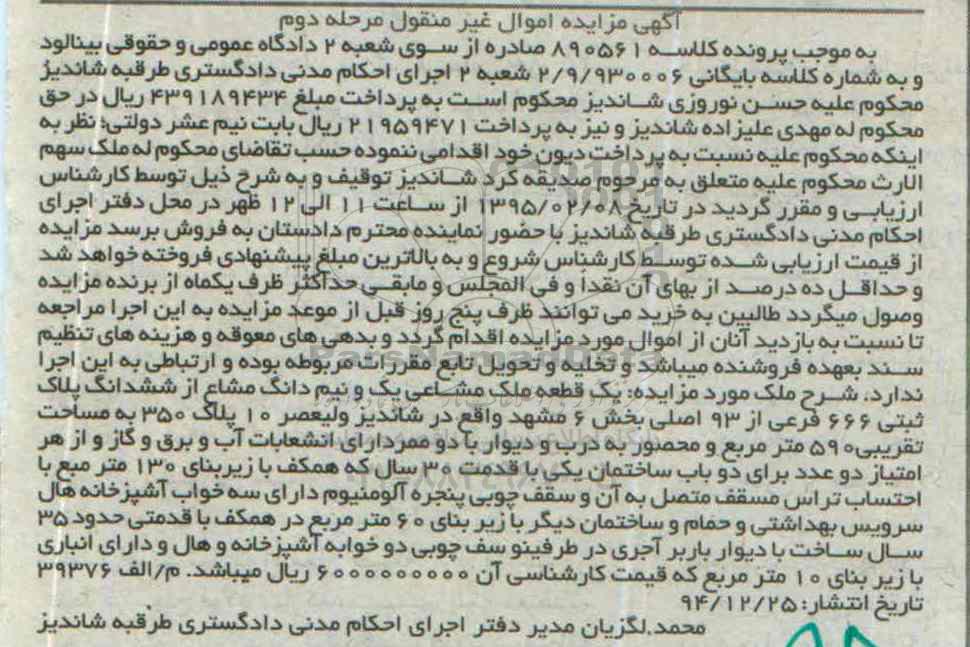 آگهی مزایده اموال غیر منقول مرحله دوم
به موجب پرونده کلاسه ۸۹۰۵۶۱ صادره از سوی شعبه ۲ دادگاه عمومی و حقوقی بینالود
و به شماره کلاسه بایگانی ۲/۹/۹۳۰۰۰۶ شعبه ۲ اجرای احکام مدنی دادگستری طرقبه شاندیز
محکوم علیه حسن نوروزی شاندیز محکوم است به پرداخت مبلغ ۴۳۹۱۸۹۴۳۴ ریال در حق
محکوم له مهدی علیزاده شاندیز و نیز به پرداخت ۲۱۹۵۹۴۷۱ ریال بابت نیم عشر دولتی؛ نظر به
اینکه محکوم علیه نسبت به پرداخت دیون خود اقدامی ننموده حسب تقاضای محکوم له ملک سهم
الارث محکوم علیه متعلق به مرحوم صدیقه کرد شاندیز توقیف و به شرح ذیل توسط کارشناس
ارزیابی و مقرر گردید در تاریخ ۱۳۹۵/۰۲/۰۸ از ساعت ۱۱ الی ۱۲ ظهر در محل دفتر اجرای
احکام مدنی دادگستری طرقبه شاندیز با حضور نماینده محترم دادستان به فروش برسد مزایده
از قیمت ارزیابی شده توسط کارشناس شروع و به بالاترین مبلغ پیشنهادی فروخته خواهد شد
و حداقل ده درصد از بهای آن نقداً و فی المجلس و مابقی حداکثر ظرف یکماه از برنده مزایده
وصول میگردد طالبین به خرید می توانند ظرف پنج روز قبل از موعد مزایده به این اجرا مراجعه
تا نسبت به بازدید آنان از اموال مورد مزایده اقدام گردد و بدهی های معوقه و هزینه های تنظیم
سند بعهده فروشنده میباشد و تخلیه و تحویل تابع مقررات مربوطه بوده و ارتباطی به این اجرا
ندارد، شرح ملک مورد مزایده: یک قطعه ملک مشاعی یک و نیم دانگ مشاع از ششدانگ پلاک
ثبتی ۶۶۶ فرعی از ۹۳ اصلی بخش ۶ مشهد واقع در شاندیز ولیعصر ۱۰ پلاک ۳۵۰ به مساحت
تقریبی۵۹۰ متر مربع و محصور به درب و دیوار با دو ممردارای انشعابات آب و برق و گاز و از هر
امتیاز دو عدد برای دو باب ساختمان یکی با قدمت ۳۰ سال که همکف با زیربنای ۱۳۰ متر مبع با
احتساب تراس مسقف متصل به آن و سقف چوبی پنجره آلومنیوم دارای سه خواب آشپزخانه هال
سرویس بهداشتی و حمام و ساختمان دیگر با زیر بنای ۶۰ متر مربع در همکف با قدمتی حدود ۳۵
سال ساخت با دیوار باربر آجری در طرفینو سف چوبی دو خوابه آشپزخانه و هال و دارای انباری
با زیر بنای ۱۰ متر مربع که قیمت کارشناسی آن ۶۰۰۰۰۰۰۰۰۰۰ ریال میباشد. م/الف ۳۹۳۷۶
تاریخ انتشار: ۹۴/۱۲/۲۵
محمد لگزیان مدیر دفتر اجرای احکام مدنی دادگستری طرقبه شاندیز